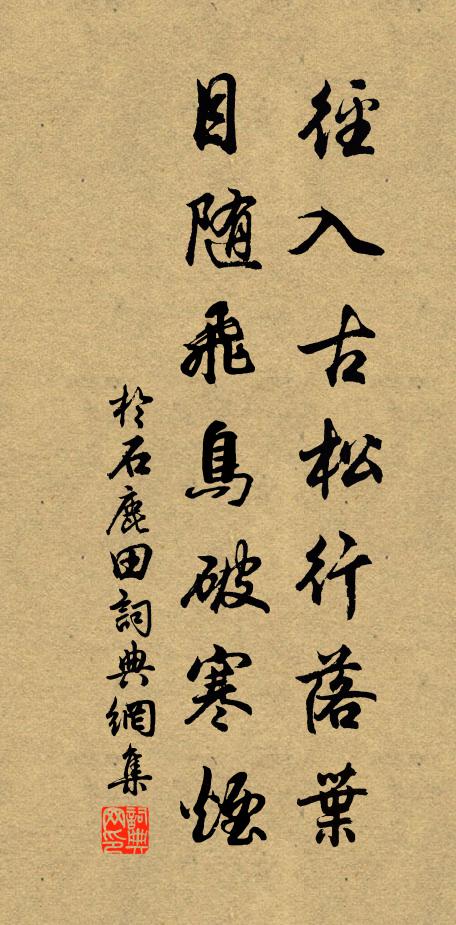 徑入古松行落葉
目随飛鳥破寒煙
於石鹿田詞典網集
詞典網印